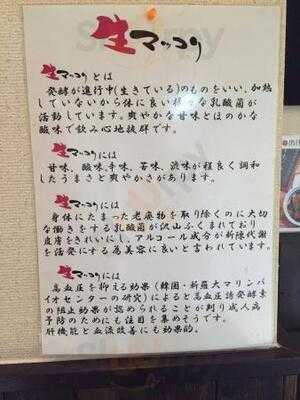 生マッコリ
生マッコリとは
発酵が進行中(生きている)のものをいい、加熱
していないから体に良い様々な乳酸菌が
活動しています。爽やかな甘味とほのかな
酸味で飲み心地抜群です。
生マッコリには
甘味、酸味、辛味、苦味、渋味が程良く調和
したうまさと爽やかさがあります。
生マッコリには
身体にたまった老廃物を取り除くのに大切
な働きをする乳酸菌が沢山ふくまれており
皮膚をきれいにし、アルコール成分が新陳代謝
を活発にする為美容に良いと言われています。
生マッコリには
高血圧を抑える効果(韓国・新羅大マリンバ
イオセンターの研究)によると高血圧誘発酵素
の阻止効果が認められることが判り成人病
予防のためにも注目を集めそうです。
肝機能と血流改善にも効果的。